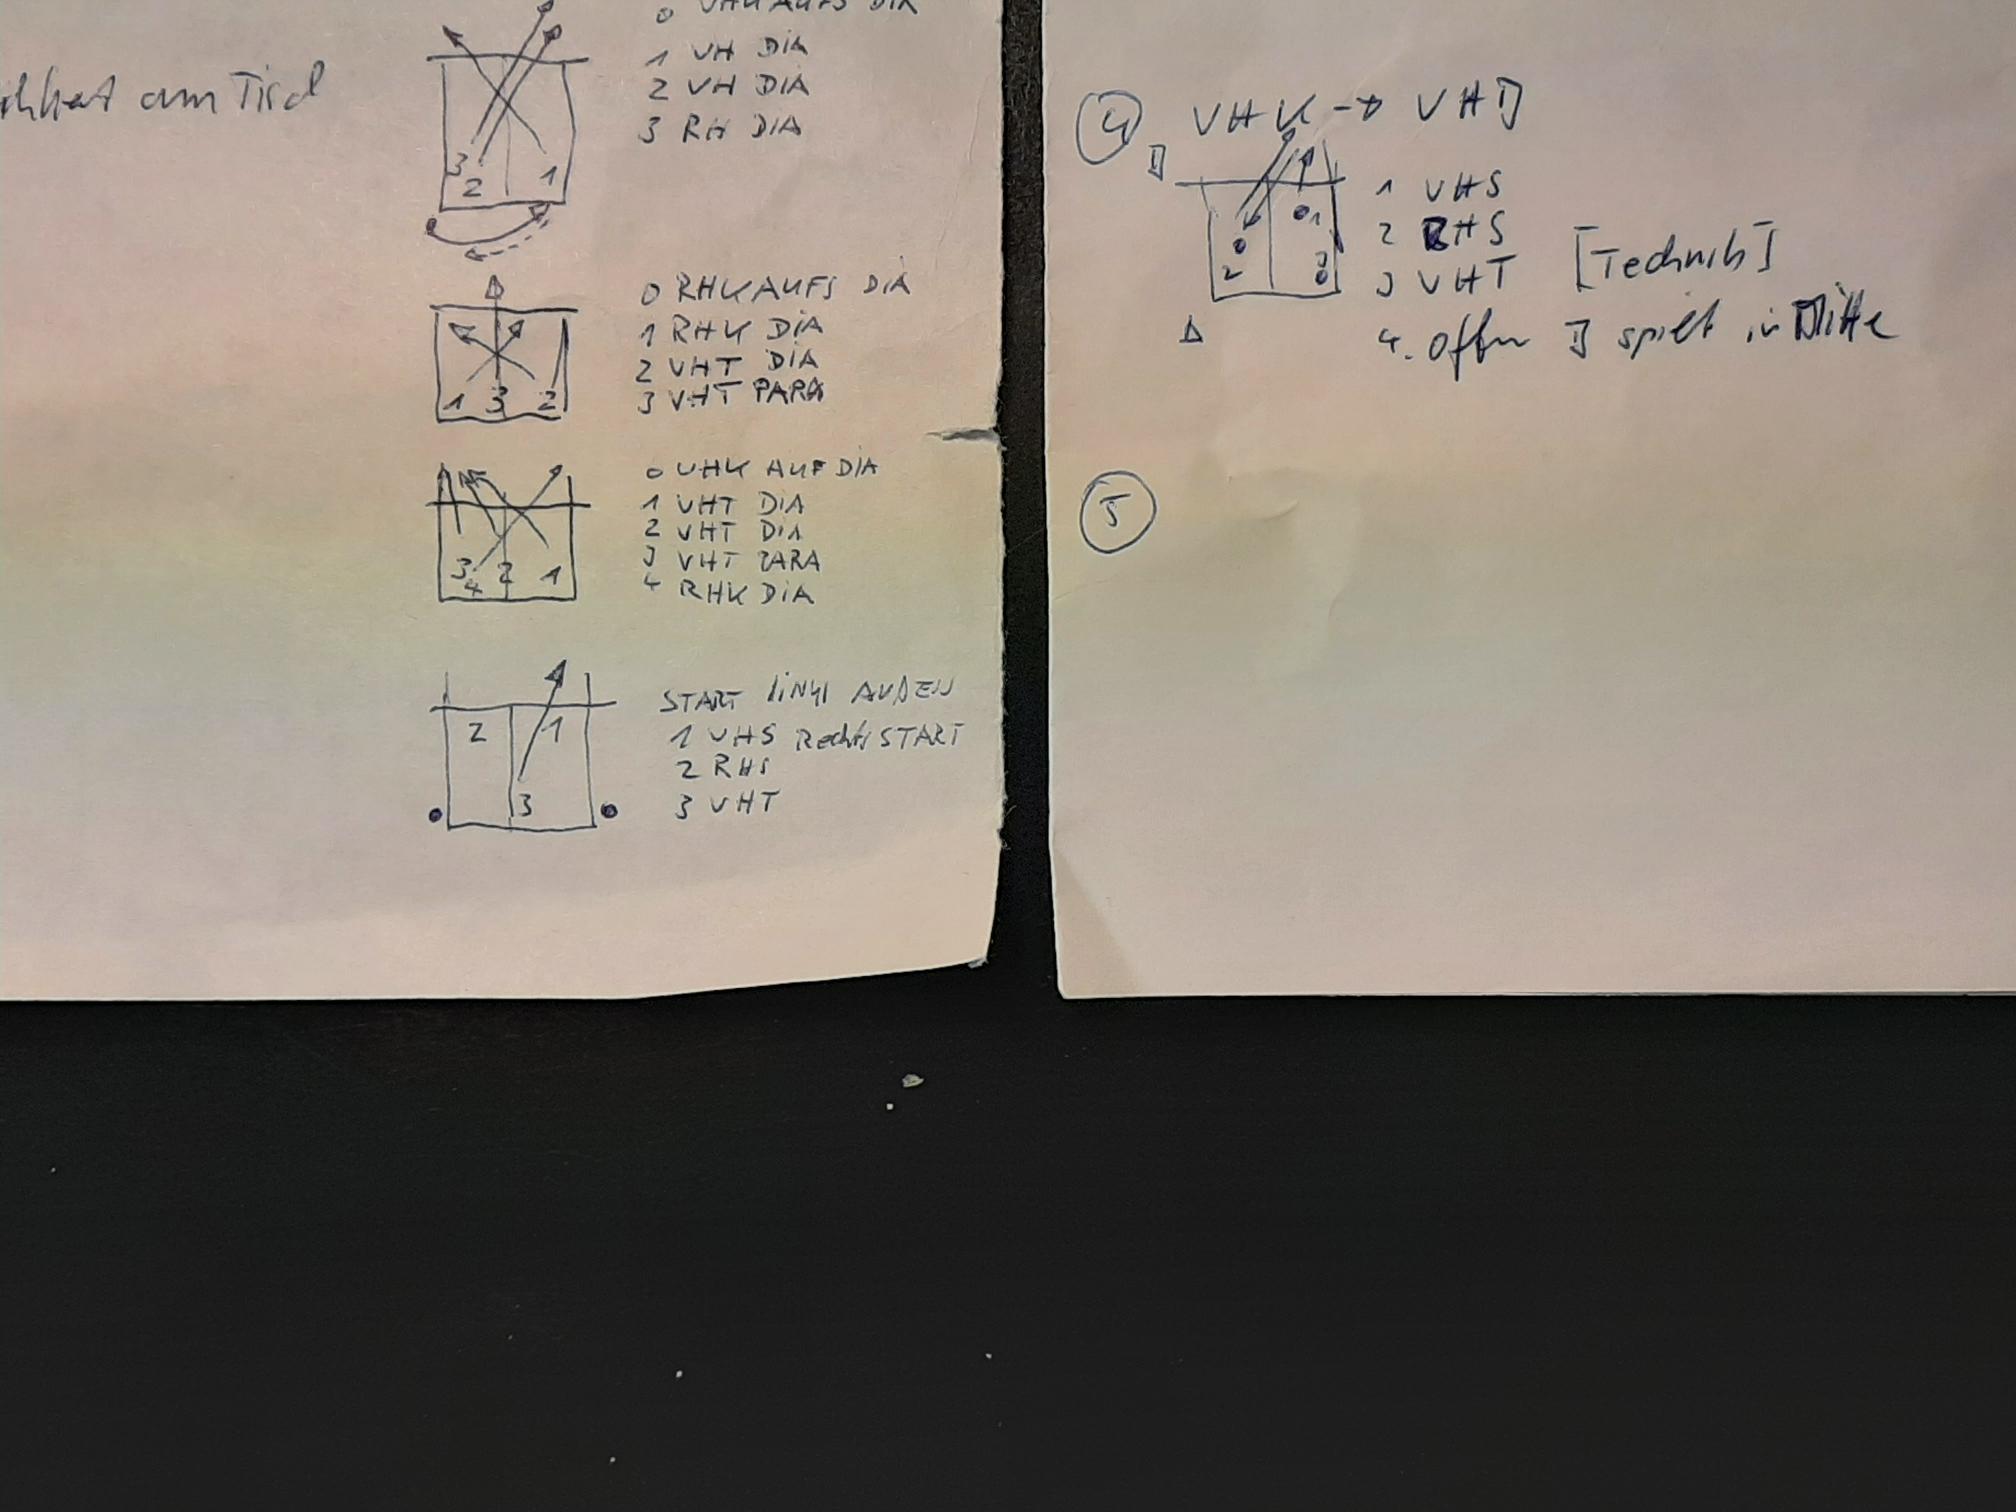 am Tisch
0 VHK AUFS DIA
1 VH DIA
2 VH DIA
3 RH DIA
3
2 1
0 RHK AUFS DIA
1 RHK DIA
2 VHT DIA
3 VHT PARA
1 3 2
0 VHK AUF DIA
1 VHT DIA
2 VHT DIA
3 VHT PARA
4 RHK DIA
3 2 1
4
START LINKS AUßEN
1 VHS Rechts START
2 RHS
3 VHT
2 1
3
4 VHK → VHB
B
1 VHS
2 RHS
3 VHT [Technik]
4. offen B spielt in Mitte
1
2 3
A
5